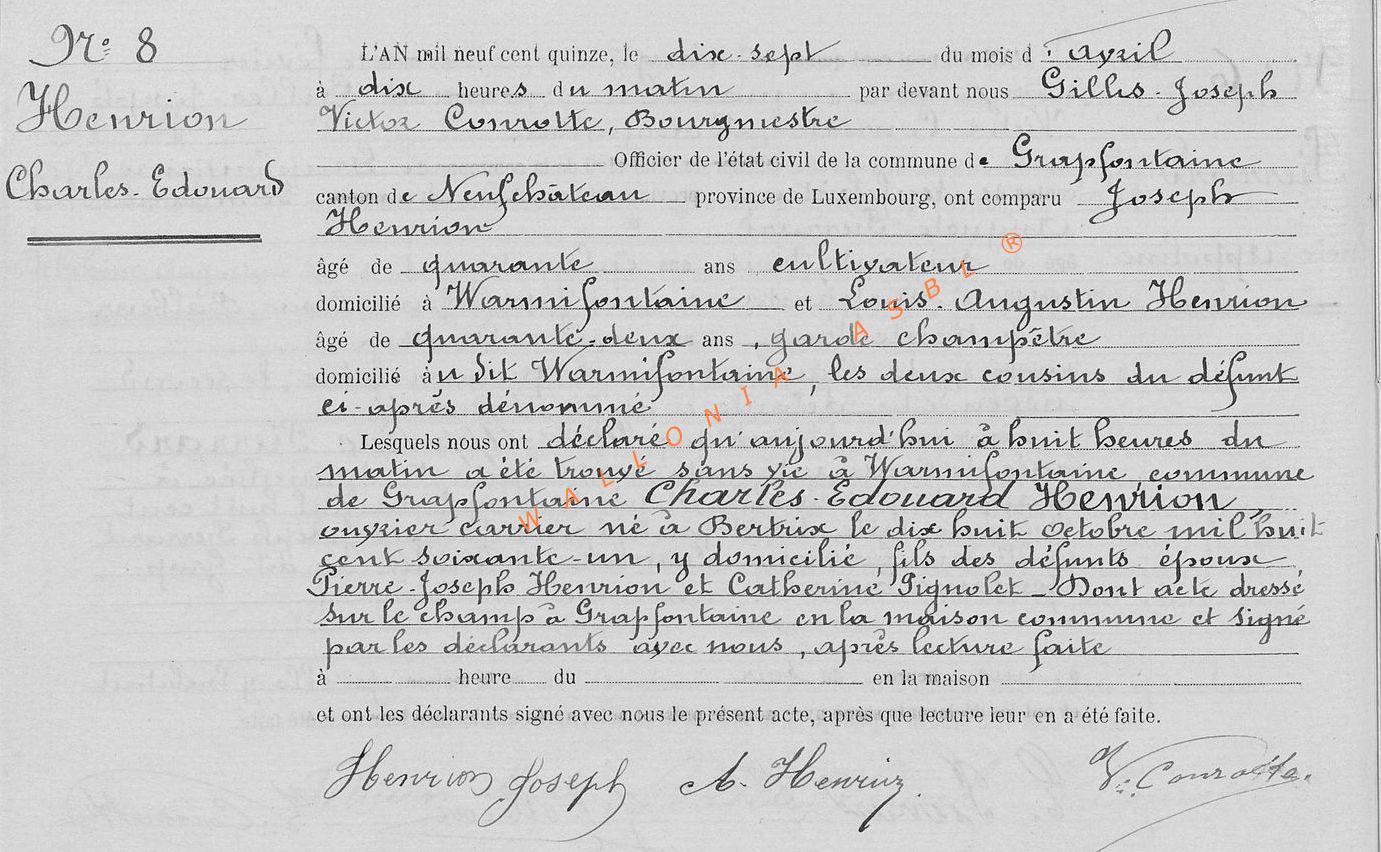 Nº 8
Henrion
Charles-Edouard
L'AN mil neuf cent quinze, le dix-sept du mois d'avril
à dix heures du matin par devant nous Gilles-Joseph
Victor Conrotte, Bourgmestre
Officier de l'état civil de la commune de Grapfontaine
canton de Neufchâteau province de Luxembourg, ont comparu Joseph
Henrion
âgé de quarante ans cultivateur
domicilié à Warmifontaine et Louis-Augustin Henrion
âgé de quarante-deux ans, garde champêtre
domicilié au dit Warmifontaine, les deux cousins du défunt
ci-après dénommé
Lesquels nous ont déclaré qu'aujourd'hui à huit heures du
matin a été trouvé sans vie à Warmifontaine commune
de Grapfontaine Charles-Edouard Henrion,
ouvrier carrier né à Bertrix le dix huit octobre mil huit
cent soixante-un, y domicilié, fils des défunts époux
Pierre-Joseph Henrion et Catherine Pignolet _ Dont acte dressé
sur le champ à Grapfontaine en la maison commune et signé
par les déclarants avec nous, après lecture faite
à heure du en la maison
et ont les déclarants signé avec nous le présent acte, après que lecture leur en a été faite.
Henrion Joseph A. Henrion V. Conrotte.
WALLONIA ASBL ®